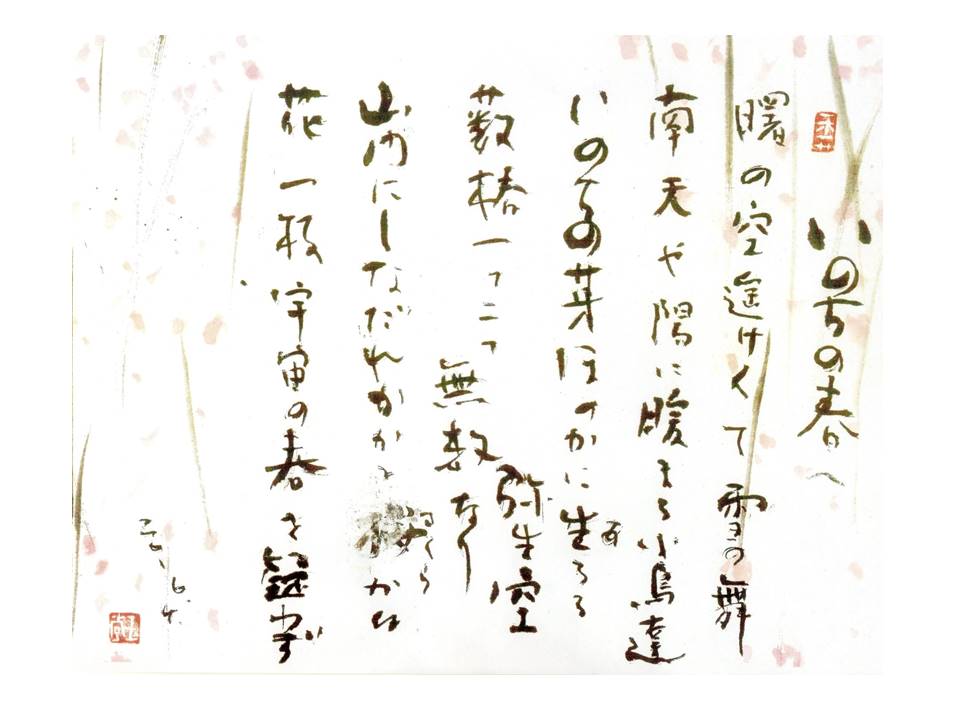 いのちの春へ
曙の空遥けくて雪の舞
南天や陽に暖まる小鳥達
いのちの芽ほのかに生るる弥生空
藪椿一つ二つ無数なり
山門にしなだれかかる桜かな
花一枝宇宙の春を